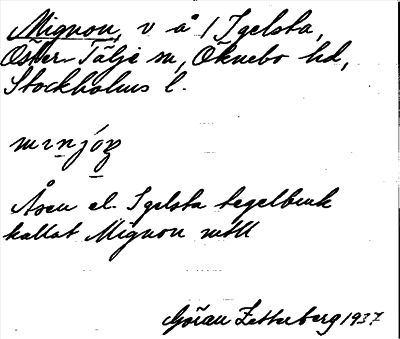 Mignon, v å / Igelsta,
Öster-Tälje sn, Öknebo hd,
Stockholms l.
Åsen el. Igelsta tegelbruk
kallat Mignon
Göran Zetterberg 1937